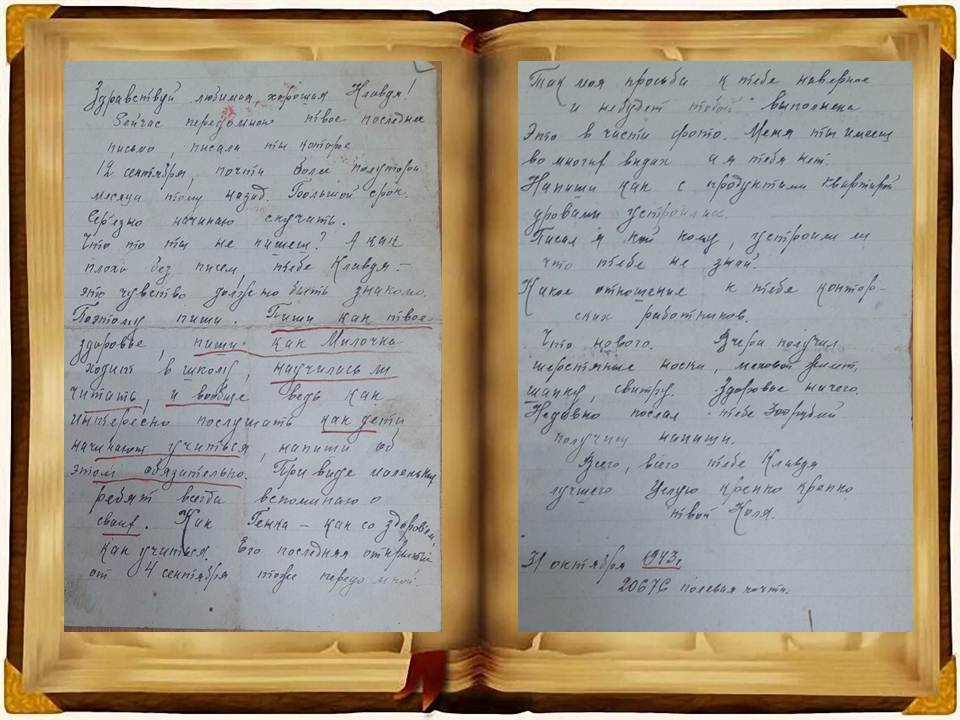 Здравствуй любимая, хорошая Клавдя!
Сейчас передомною твое последнее
письмо, писала ты которое
12 сентября, почти боли полутора
месяца тому назад. Большой срок.
Серъезно начинаю скучать.
Что то ты не пишеш? А как
плохо без писем, тебе Клавдя –
это чувство должно быть знакомо.
Поэтому пиши. Пиши как твое
здоровье, пиши как Милочка
ходит в школу, научилась ли
читать, и вообще ведь как
интересно послушать как дети
начинают учиться, напиши об
этом обязательно. При виде маленьких
ребят всегда вспоминаю о
своих. Как Генка – как со здоровьем,
как учиться. Его последняя открытка
от 4 сентября тоже передо мной.
Так моя просьба к тебе наверное
и небудет тобой выполнена
Это в части фото. Меня ты имееш
во многих видах а я тебя нет.
Напиши как с продуктами квартирой
дровами устроилась.
Писал я кой кому, устроили ли
что тебе не знаю.
Какое отношение к тебе контор-
ских работников.
Что нового. Вчера получил
шерстяные носки, меховой жилет,
шапку, свитру. Здоровье ничего.
Недавно послал тебе 300 рублей
получиш напиши.
Всего, всего тебе Клавдя
лучшего Целую крепко крепко
твой Коля.
31 октября 1943г
20676 полевая почта.